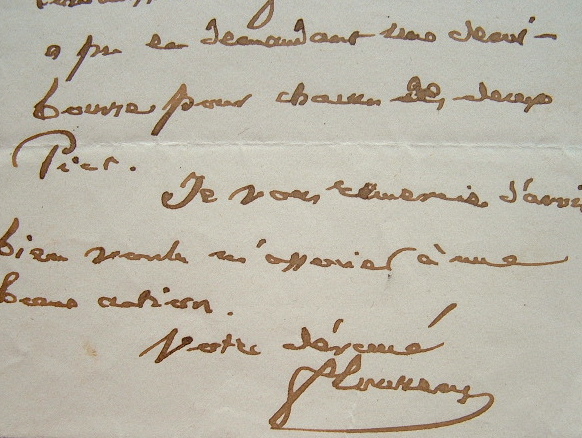 a pu en demandant une demi-
bourse pour chacun des deux
Piet.
Je vous remercie d'avoir
bien voulu m'associer à une
beau action.
Votre dévoué